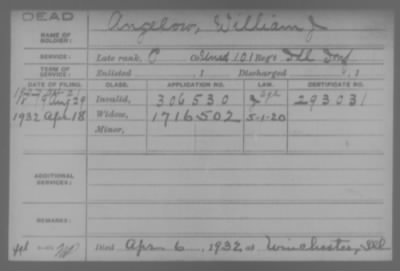 DEAD
NAME OF SOLDIER: Angelow, William J
SERVICE: Late rank, C Co. Unas 101 Reg't Ill Inf
TERM OF SERVICE: Enlisted , 1 Discharged , 1
DATE OF FILING. CLASS. APPLICATION NO. LAW. CERTIFICATE NO.
Aug 29 Invalid, 306530 Age 293031
1932 Apr 18 Widow, 1716502 5-1-20
Minor,
ADDITIONAL SERVICES:
REMARKS:
Died Apr 6, 1932, at Winchester, Ill